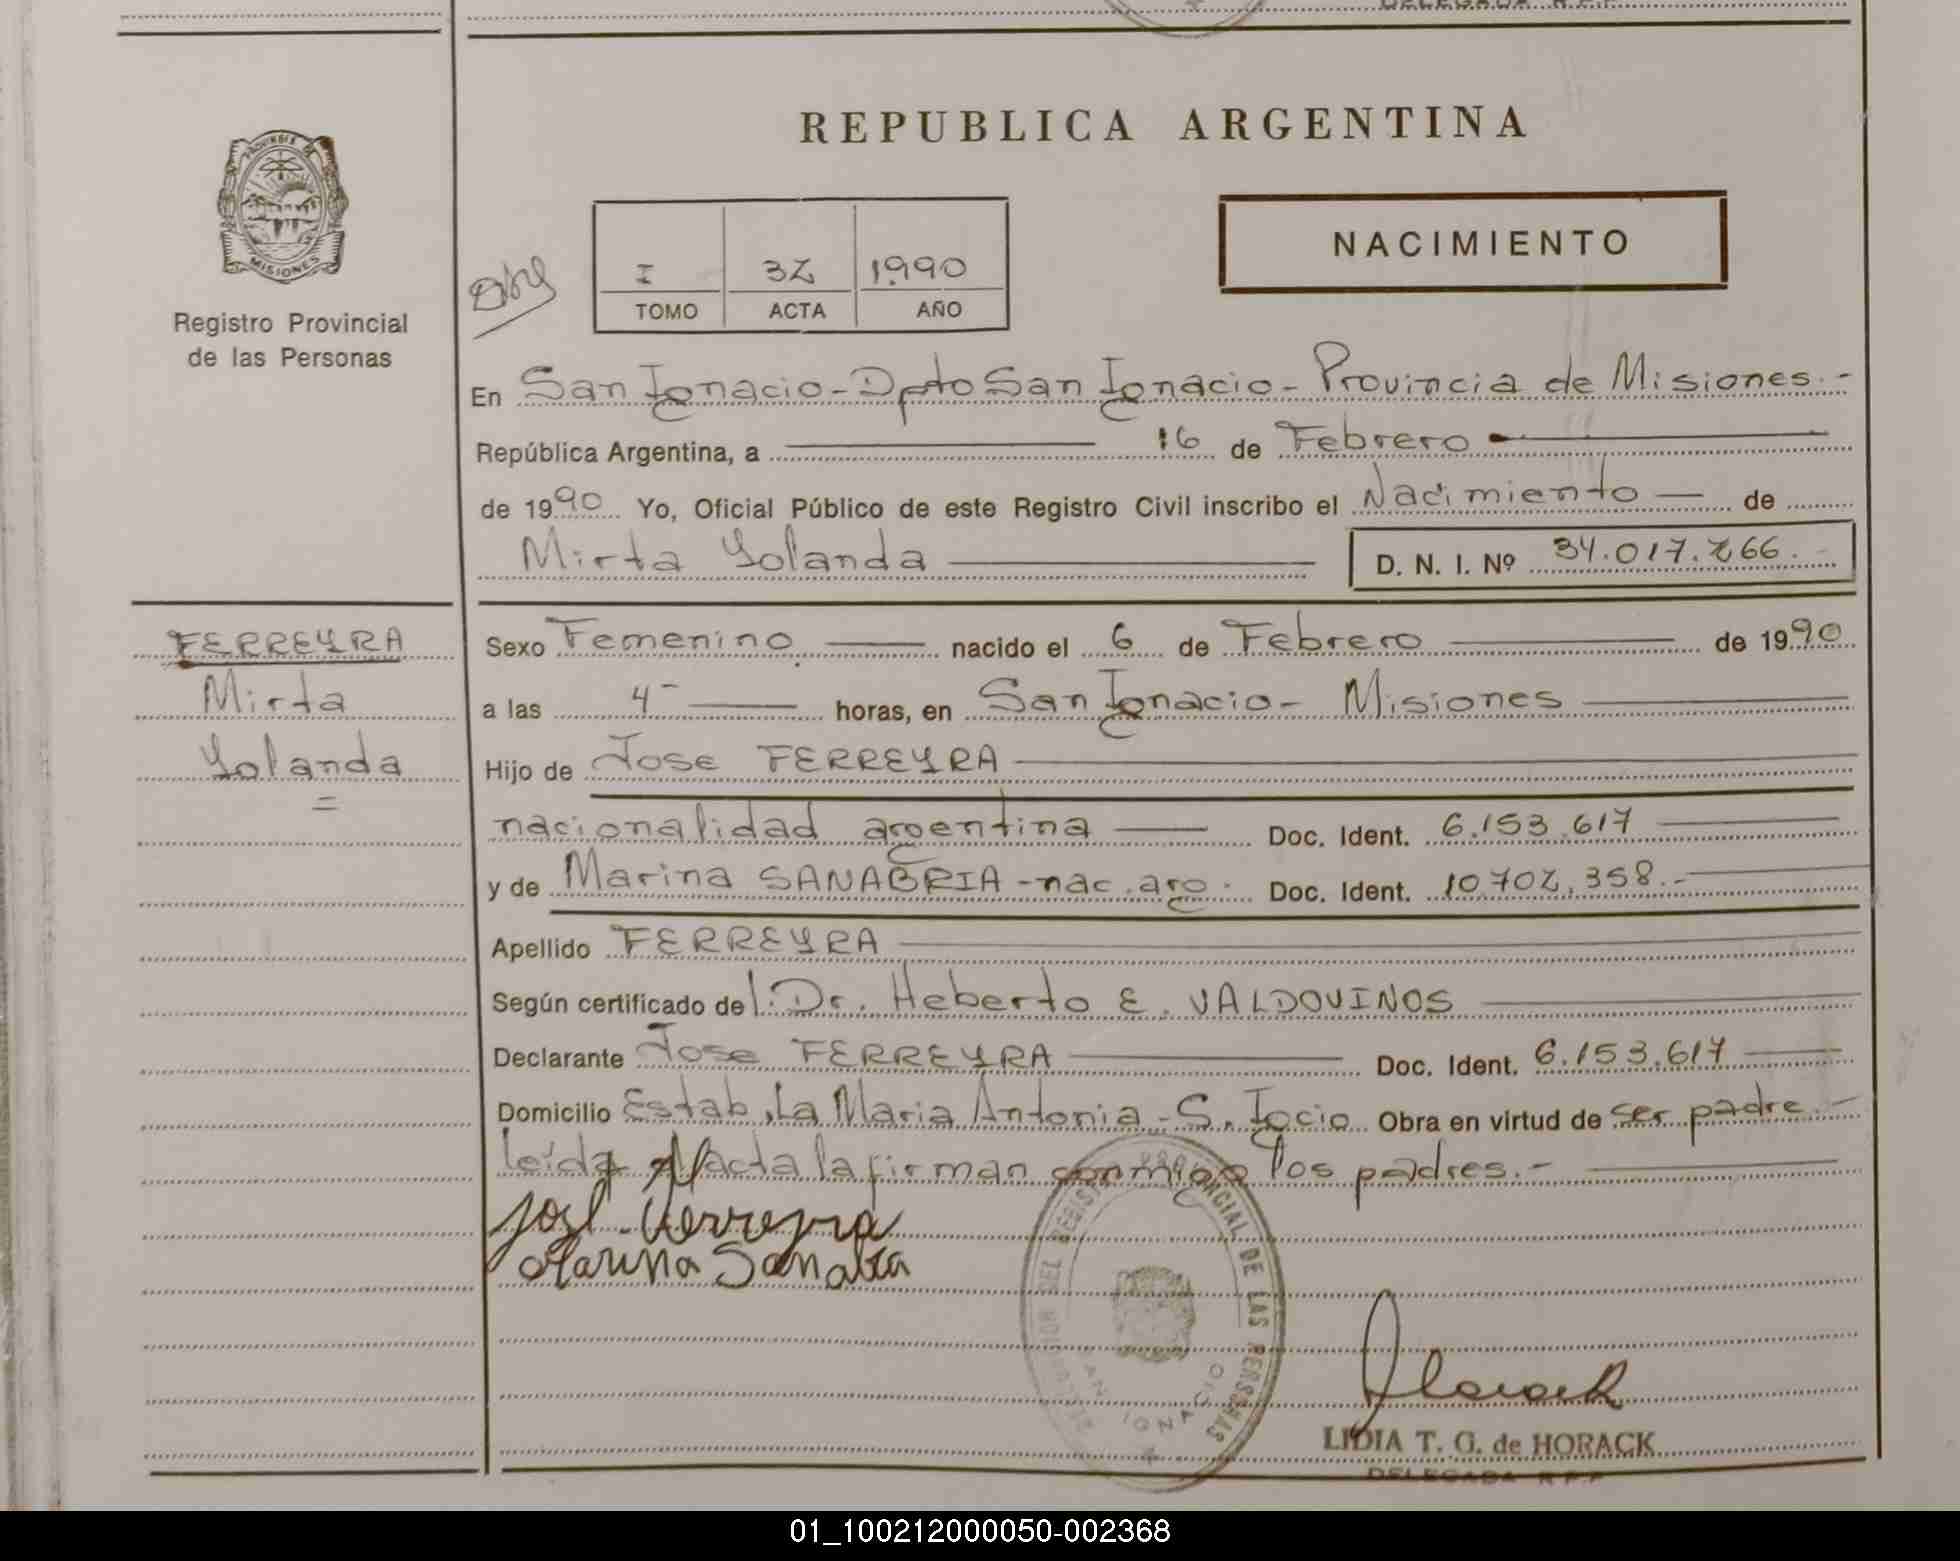 DELEGADA R.P.P.
REPUBLICA ARGENTINA
PROVINCIA DE
MISIONES
Registro Provincial
de las Personas
I 32 1990
TOMO ACTA AÑO
NACIMIENTO
En San Ignacio - Dpto San Ignacio - Provincia de Misiones.-
República Argentina, a 16 de Febrero
de 1990 Yo, Oficial Público de este Registro Civil inscribo el Nacimiento de
Mirta Yolanda D. N. I. Nº 34.017.266.-
FERREYRA
Mirta
Yolanda
=
Sexo Femenino nacido el 6 de Febrero de 1990
a las 4- horas, en San Ignacio - Misiones
Hijo de Jose FERREYRA
nacionalidad argentina Doc. Ident. 6.153.617
y de Marina SANABRIA - nac. arg. Doc. Ident. 10.702.358.-
Apellido FERREYRA
Según certificado del Dr. Heberto E. VALDOVINOS
Declarante Jose FERREYRA Doc. Ident. 6.153.617
Domicilio Estab. La Maria Antonia - S. Igcio Obra en virtud de ser padre.-
leída el acta la firman conmigo los padres.-
José Ferreyra
Marina Sanabria
DEL REGISTRO PROVINCIAL DE LAS PERSONAS
SAN IGNACIO
LIDIA T. G. de HORACK
DELEGADA R.P.P.
01_100212000050-002368